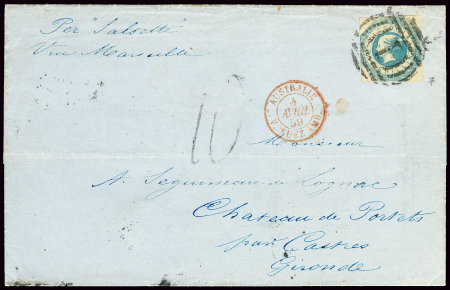 Per "Salsette"
Via Marseille
AUSTRALIE
4
AVRIL
59
A. SUEZ AMB.
10
Monsieur
A. Seguineau à Lognac
Chateau de Portets
par Castres
Gironde